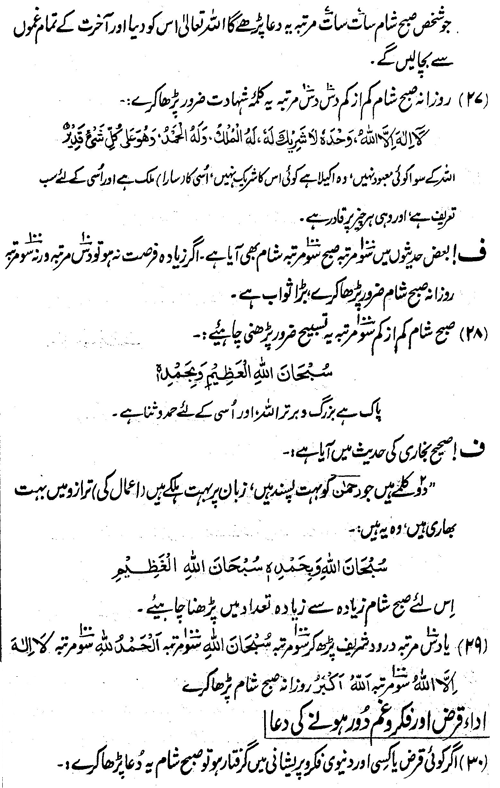 جو شخص صبح شام سات سات مرتبہ یہ دعا پڑھے گا اللہ تعالیٰ اس کو دنیا اور آخرت کے تمام غموں
سے بچالیں گے۔
(۲۷) روزانہ صبح شام کم از کم دس دس مرتبہ یہ کلمۂ شہادت ضرور پڑھا کرے:۔
لَا اِلٰهَ اِلَّا اللّٰهُ، وَحْدَهٗ لَا شَرِيْكَ لَهٗ، لَهُ الْمُلْكُ، وَلَهُ الْحَمْدُ، وَهُوَ عَلٰى كُلِّ شَيْءٍ قَدِيْرٌ
اللہ کے سوا کوئی معبود نہیں، وہ اکیلا ہے کوئی اس کا شریک نہیں، اسی کا (سارا) ملک ہے اور اُسی کے لئے سب
تعریف ہے، اور وہی ہر چیز پر قادر ہے۔
ف! بعض حدیثوں میں سو ۱۰۰ مرتبہ صبح سو ۱۰۰ مرتبہ شام بھی آیا ہے۔ اگر زیادہ فرصت نہ ہو تو دس ۱۰ مرتبہ ورنہ سو ۱۰۰ مرتبہ
روزانہ صبح شام ضرور پڑھا کرے، بڑا ثواب ہے۔
(۲۸) صبح شام کم از کم سو ۱۰۰ مرتبہ یہ تسبیح ضرور پڑھنی چاہیئے:۔
سُبْحَانَ اللهِ الْعَظِيْمِ وَبِحَمْدِهٖ
پاک ہے بزرگ و برتر اللہ، اور اُسی کے لئے حمد و ثنا ہے۔
ف! صحیح بخاری کی حدیث میں آیا ہے:۔
"دو ۲ کلمے ہیں جو رحمٰن کو بہت پسند ہیں، زبان پر بہت ہلکے ہیں (اعمال کی) ترازو میں بہت
بھاری ہیں، وہ یہ ہیں:۔
سُبْحَانَ اللهِ وَبِحَمْدِهٖ سُبْحَانَ اللهِ الْعَظِيْمِ
اس لئے صبح شام زیادہ سے زیادہ تعداد میں پڑھنا چاہیئے۔
(۲۹) یا دس ۱۰ مرتبہ درود شریف پڑھ کر سو ۱۰۰ مرتبہ سُبْحَانَ اللهِ سو ۱۰۰ مرتبہ اَلْحَمْدُ لِلّٰهِ سو ۱۰۰ مرتبہ لَا اِلٰهَ
اِلَّا اللهُ سو ۱۰۰ مرتبہ اَللّٰهُ اَكْبَرُ روزانہ صبح شام پڑھا کرے
اداء قرض اور فکر و غم دُور ہونے کی دعا
(۳۰) اگر کوئی قرض یا کسی اور دنیوی فکر و پریشانی میں گرفتار ہو تو صبح شام یہ دُعا پڑھا کرے:۔